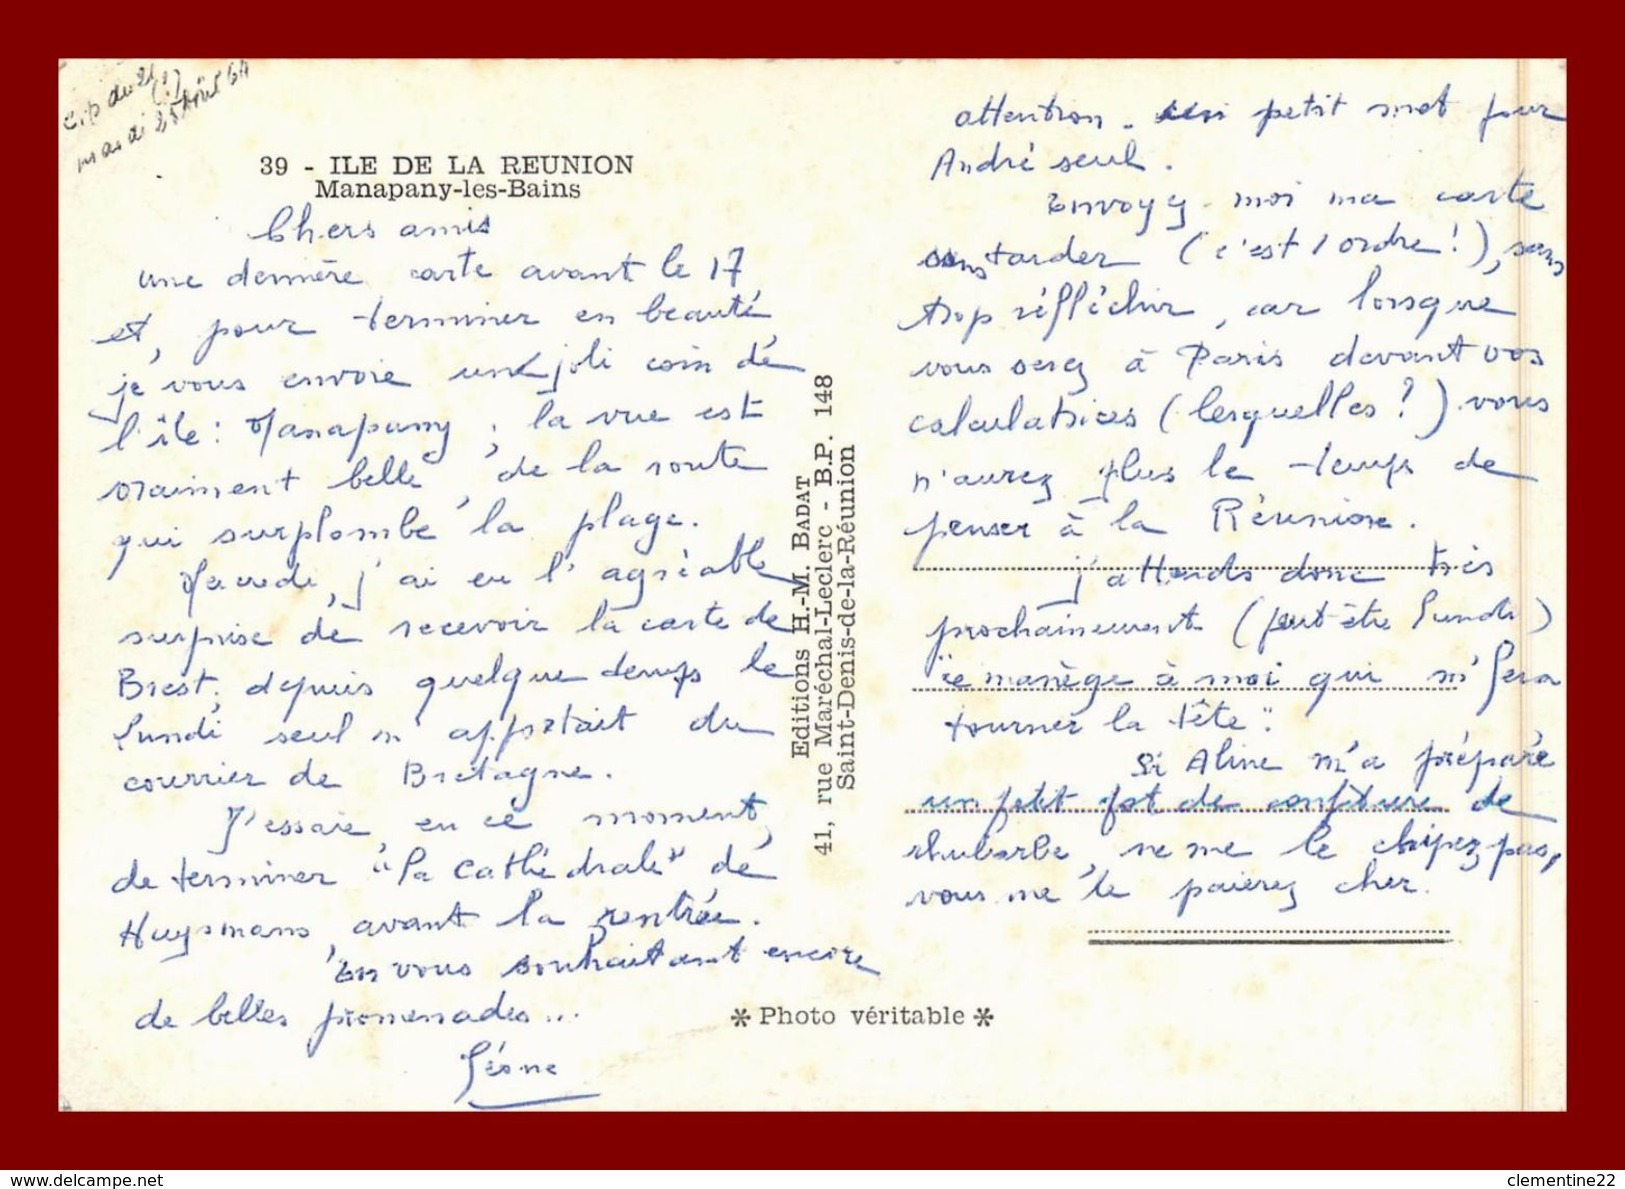 39 - ILE DE LA REUNION
Manapany-les-Bains
Chers amis
une dernière carte avant le 17
et, pour terminer en beauté,
je vous envoie un joli coin de
l'île : Manapany ; la vue est
vraiment belle, de la route
qui surplombe la plage.
j'ai eu l'agréable
surprise de recevoir la carte de
Brest, depuis quelque temps le
lundi seul m'apportait du
courrier de Bretagne.
J'essaie, en ce moment,
de terminer "la cathédrale" de
Huysmans, avant la rentrée.
En vous souhaitant encore
de belles promenades...
Léone
Editions H.-M. BADAT
41, rue Maréchal-Leclerc - B.P. 148
Saint-Denis-de-la-Réunion
attention. un petit mot pour
André seul.
Envoyez-moi ma carte
sans tarder (c'est 1 ordre !), sans
trop réfléchir, car lorsque
vous serez à Paris devant vos
calculatrices (lesquelles ?) vous
n'aurez plus le temps de
penser à la Réunion.
J'attends donc très
prochainement (peut-être lundi)
"le manège à moi qui m'fera
tourner la tête".
Si Aline m'a préparé
un petit pot de confiture de
rhubarbe, ne me le chipez pas,
vous me le paierez cher.
* Photo véritable *
www.delcampe.net
clementine22